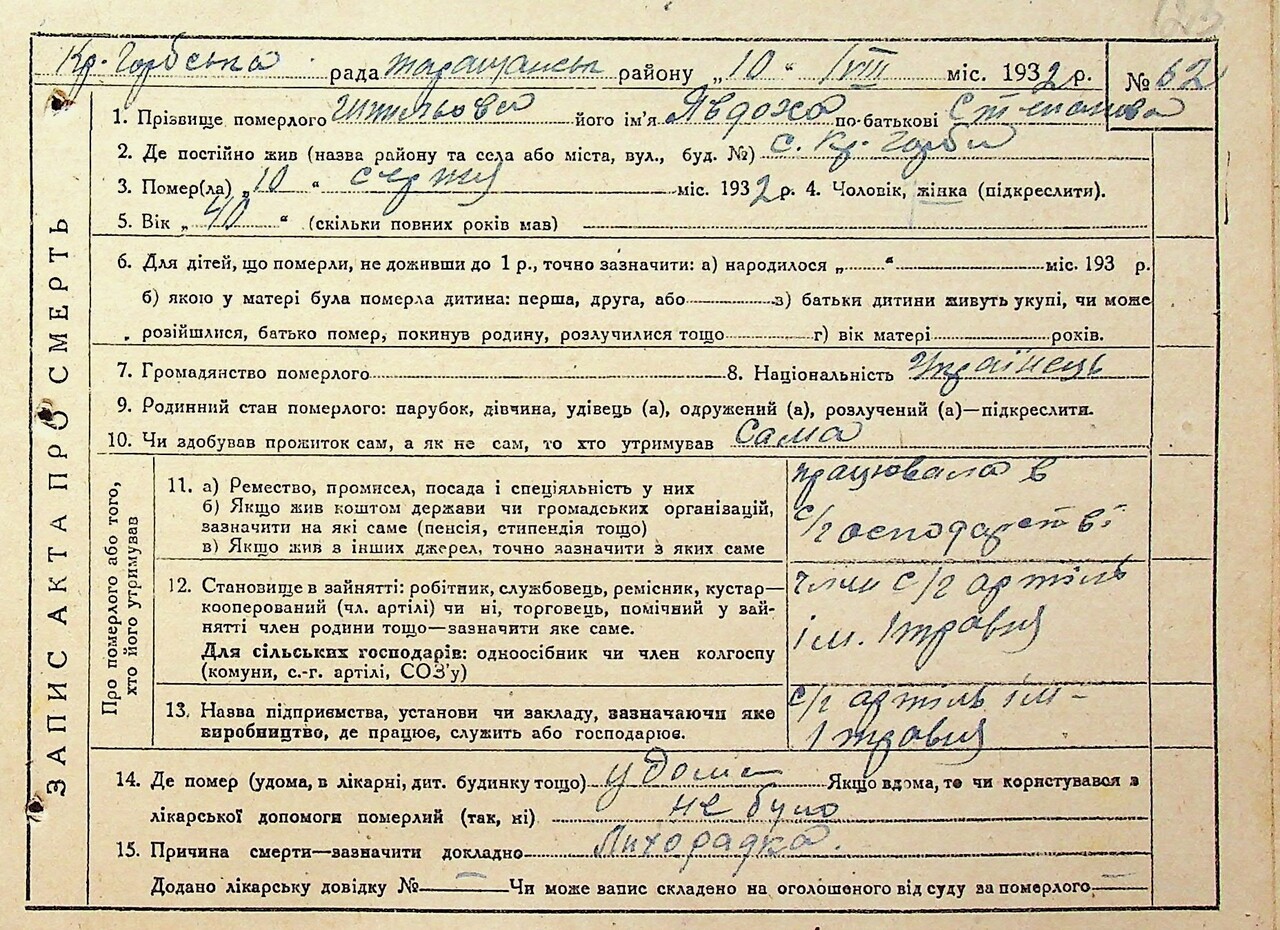 123
Кр. Горбська рада таращанськ району „10“ VIII міс. 1932 р. № 62
1. Прізвище померлого його ім'я Явдоха по-батькові Степанова
2. Де постійно жив (назва району та села або міста, вул., буд. №) с. Кр. Горби
3. Помер(ла) „10“ серпня міс. 1932 р. 4. Чоловік, жінка (підкреслити).
5. Вік „40“ (скільки повних років мав)
6. Для дітей, що померли, не доживши до 1 р., точно зазначити: а) народилося „ “ міс. 193 р.
б) якою у матері була померла дитина: перша, друга, або в) батьки дитини живуть укупі, чи може
розійшлися, батько помер, покинув родину, розлучилися тощо г) вік матері років.
7. Громадянство померлого 8. Національність Українець
9. Родинний стан померлого: парубок, дівчина, удівець (а), одружений (а), розлучений (а)—підкреслити.
10. Чи здобував прожиток сам, а як не сам, то хто утримував Сама
ЗАПИС АКТА ПРО СМЕРТЬ
Про померлого або того,
хто його утримував
11. а) Ремество, промисел, посада і спеціяльність у них
б) Якщо жив коштом держави чи громадських організацій,
зазначити на які саме (пенсія, стипендія тощо)
в) Якщо жив з інших джерел, точно зазначити з яких саме
працювала в
с/господарстві
12. Становище в зайнятті: робітник, службовець, ремісник, кустар—
кооперований (чл. артілі) чи ні, торговець, помічний у зай-
нятті член родини тощо—зазначити яке саме.
Для сільських господарів: одноосібник чи член колгоспу
(комуни, с.-г. артілі, СОЗ'у)
член с/г артіль
ім. 1 травня
13. Назва підприємства, установи чи закладу, зазначаючи яке
виробництво, де працює, служить або господарює.
с/г артіль ім-
1 травня
14. Де помер (удома, в лікарні, дит. будинку тощо) удома Якщо вдома, то чи користувався з
лікарської допомоги померлий (так, ні) не було
15. Причина смерти—зазначити докладно Лихорадка.
Додано лікарську довідку №— Чи може запис складено на оголошеного від суду за померлого —